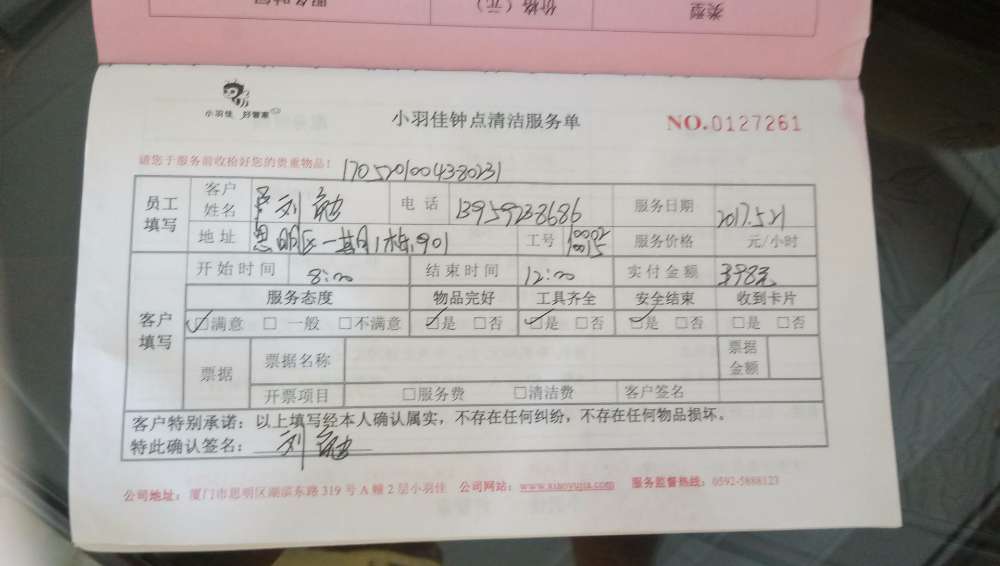 类型 价格（元） 服务时间
小羽佳 好管家
小羽佳钟点清洁服务单
NO.0127261
请您于服务前收检好您的贵重物品！ 1705201004380231
员工填写 客户姓名 刘 电话 13959238686 服务日期 2017.5.21
地址 思明区一期1栋.901 工号 10002 10015 服务价格 元/小时
客户填写 开始时间 8:00 结束时间 12:00 实付金额 398元
服务态度 物品完好 工具齐全 安全结束 收到卡片
☑满意 □ 一般 □不满意 ☑是 □否 ☑是 □否 ☑是 □否 □是 □否
票据 票据名称 票据金额
开票项目 □服务费 □清洁费 客户签名
客户特别承诺：以上填写经本人确认属实，不存在任何纠纷，不存在任何物品损坏。
特此确认签名： 刘
公司地址：厦门市思明区湖滨东路 319 号 A 幢 2 层小羽佳 公司网站：www.xiaoyujia.com 服务监督热线：0592-5888123